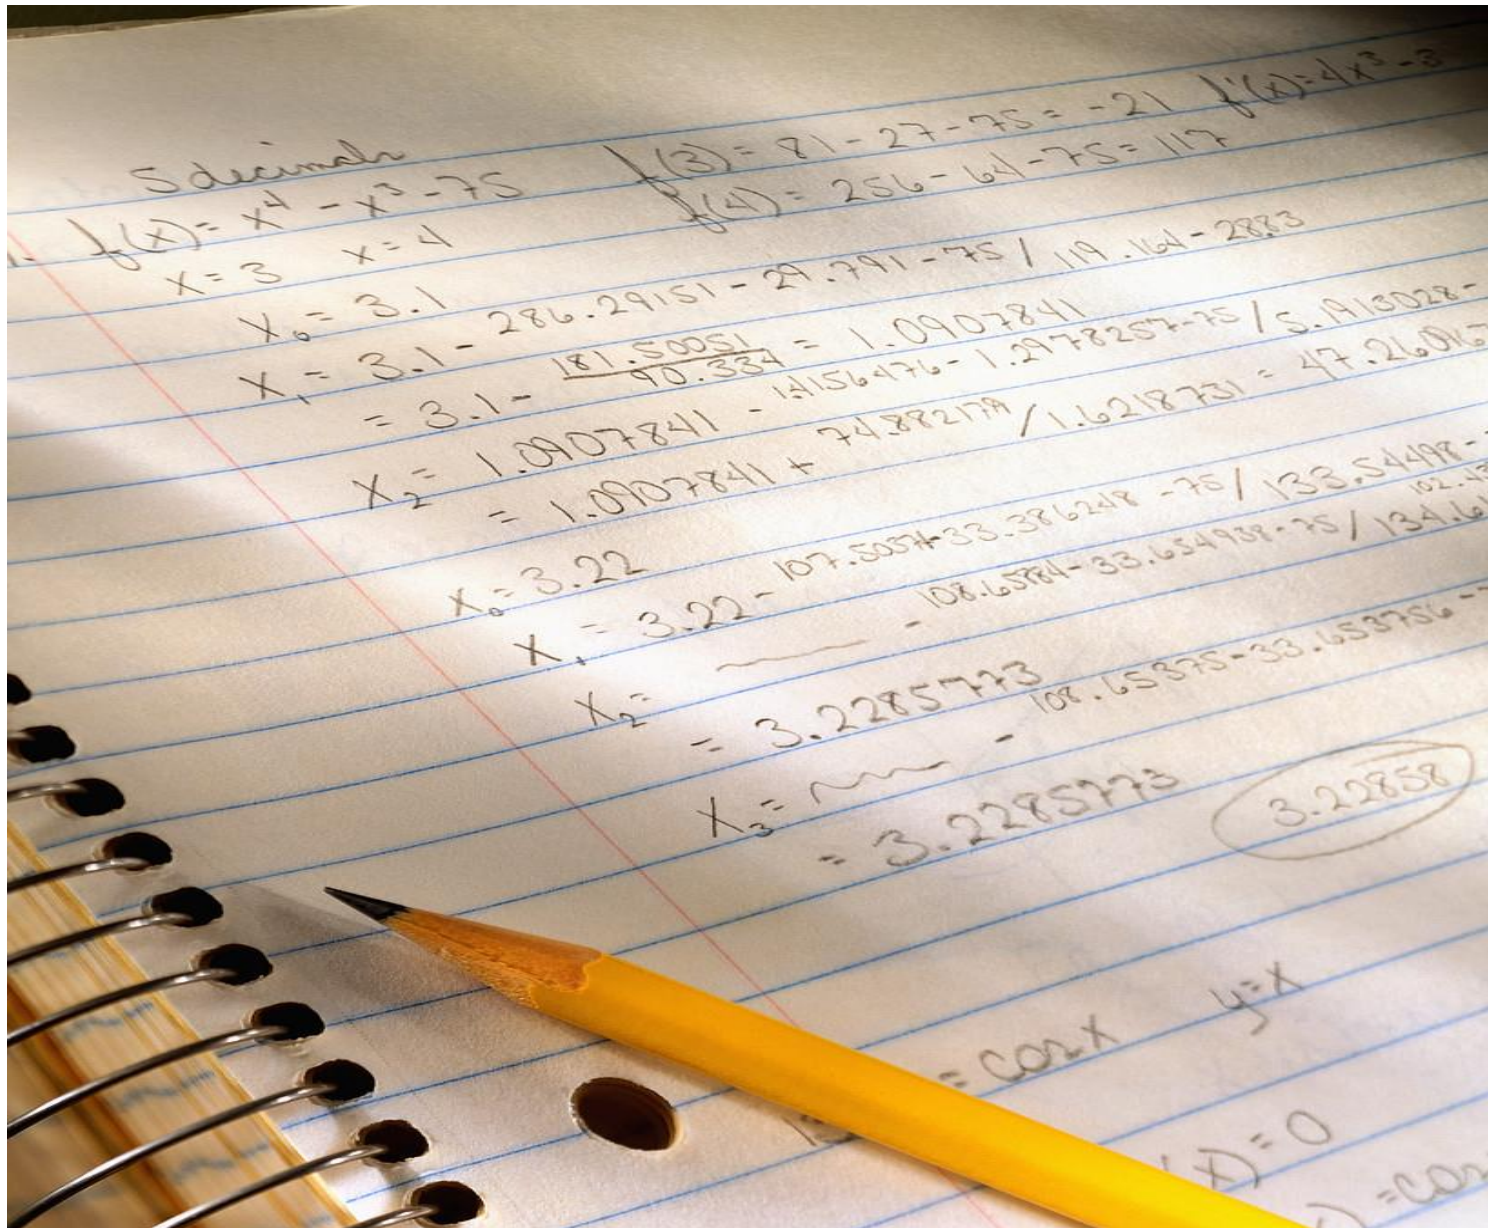 5 decimals
1. f(x) = x⁴ - x³ - 75 f(3) = 81 - 27 - 75 = -21 f'(x) = 4x³ - 3
x = 3 x = 4 f(4) = 256 - 64 - 75 = 117
x₀ = 3.1
x₁ = 3.1 - 286.29151 - 29.791 - 75 / 119.164 - 28.83
= 3.1 - 181.50051 / 90.334 = 1.0907841
x₂ = 1.0907841 - 1.4156476 - 1.2978257 - 75 / 5.1913028 -
= 1.0907841 + 74.882179 / 1.6218731 = 47.26096
x₀ = 3.22
x₁ = 3.22 - 107.50371 - 33.386248 - 75 / 133.54498 -
x₂ = - 108.65784 - 33.654938 - 75 / 134.61
= 3.2285773
x₃ = - 108.65375 - 33.653756 -
= 3.2285773 3.22858
= cos x y = x
(x) = 0
) = cos